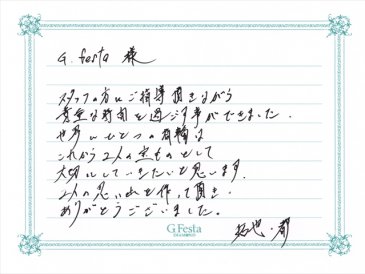 G.festa 様
スタッフの方にご指導頂きながら
貴重な時間を過ごす事ができました.
世界にひとつの指輪は
これから2人の宝ものとして
大切にしていきたいと思います.
2人の思い出を作って頂き.
ありがとうございました。
拓也・都
G.Festa